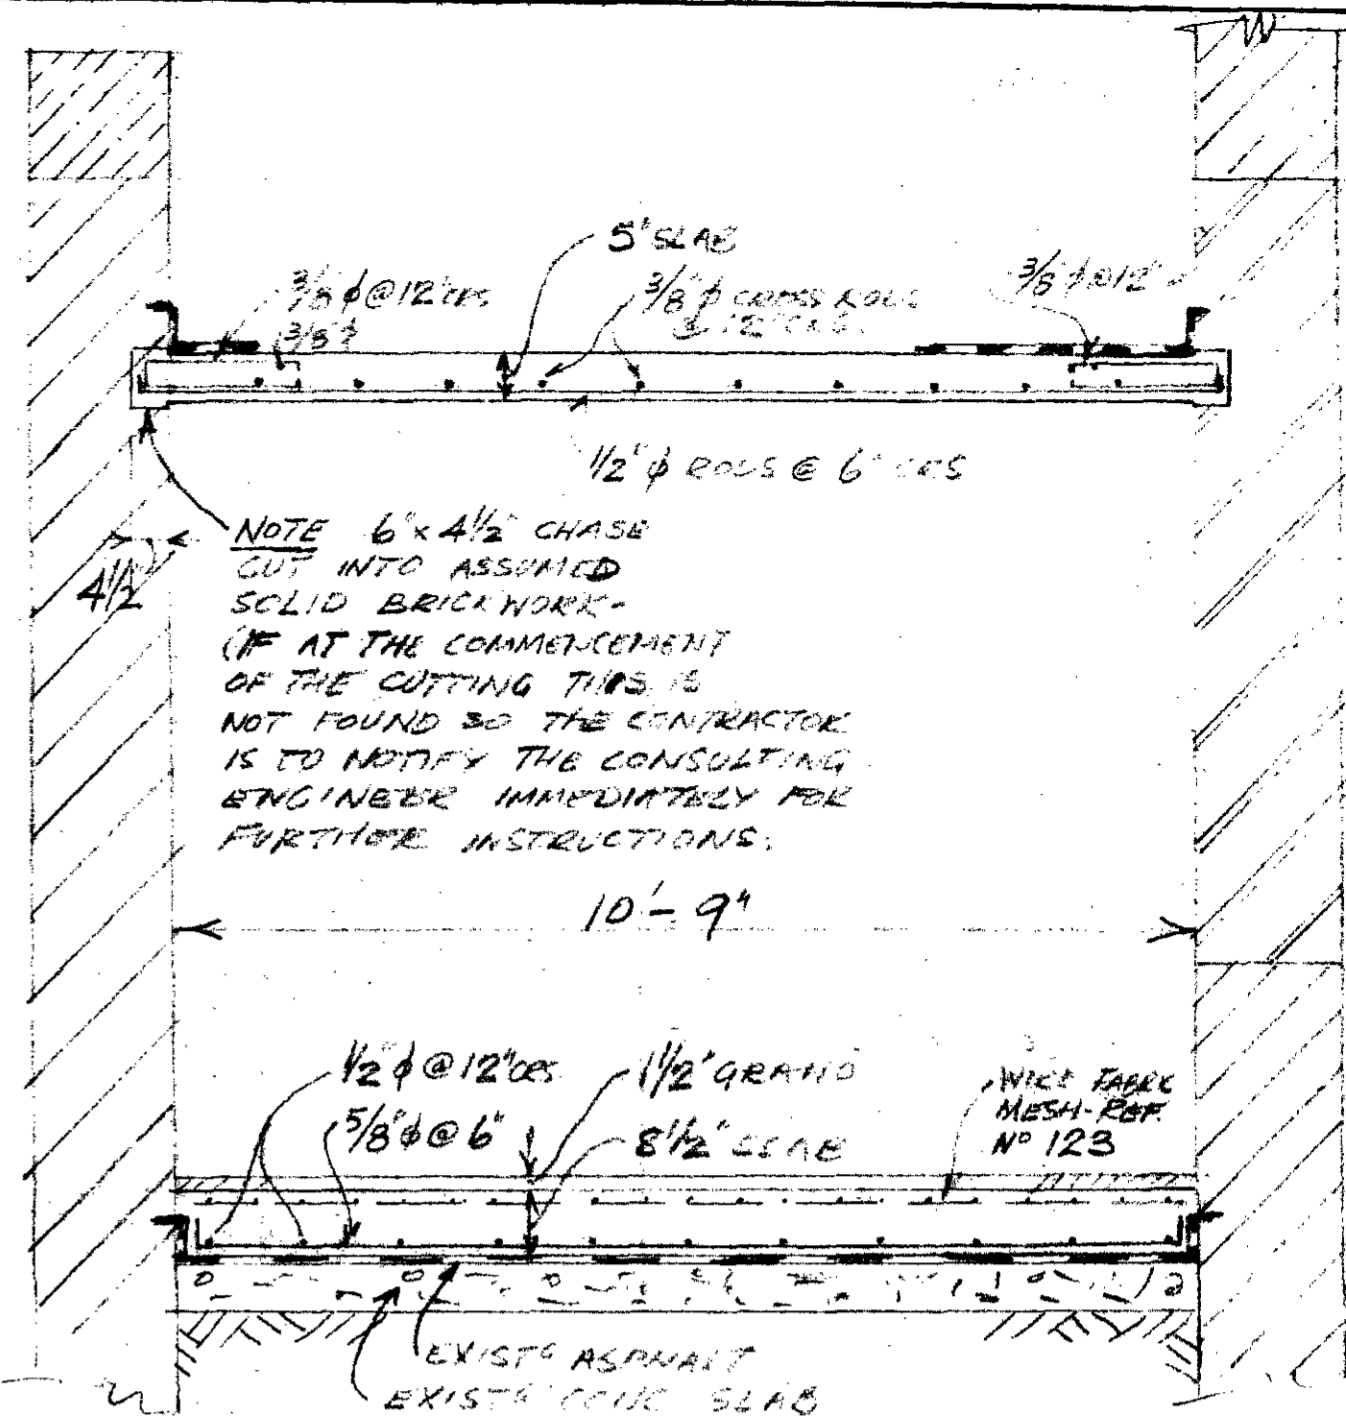 5" SLAB
3/8" φ @ 12" CRS
3/8" φ
3/8" φ CROSS RODS
@ 12" CRS.
3/8" φ @ 12"
1/2" φ RODS @ 6" CRS
NOTE 6" x 4 1/2" CHASE
CUT INTO ASSUMED
SOLID BRICKWORK-
(IF AT THE COMMENCEMENT
OF THE CUTTING THIS IS
NOT FOUND SO THE CONTRACTOR
IS TO NOTIFY THE CONSULTING
ENGINEER IMMEDIATELY FOR
FURTHER INSTRUCTIONS.
4 1/2
10'- 9"
1/2" φ @ 12" CRS
5/8" φ @ 6"
1 1/2" GRANO
8 1/2" SLAB
WIRE FABRIC
MESH-REF.
Nº 123
EXISTG ASPHALT
EXISTG CONC SLAB